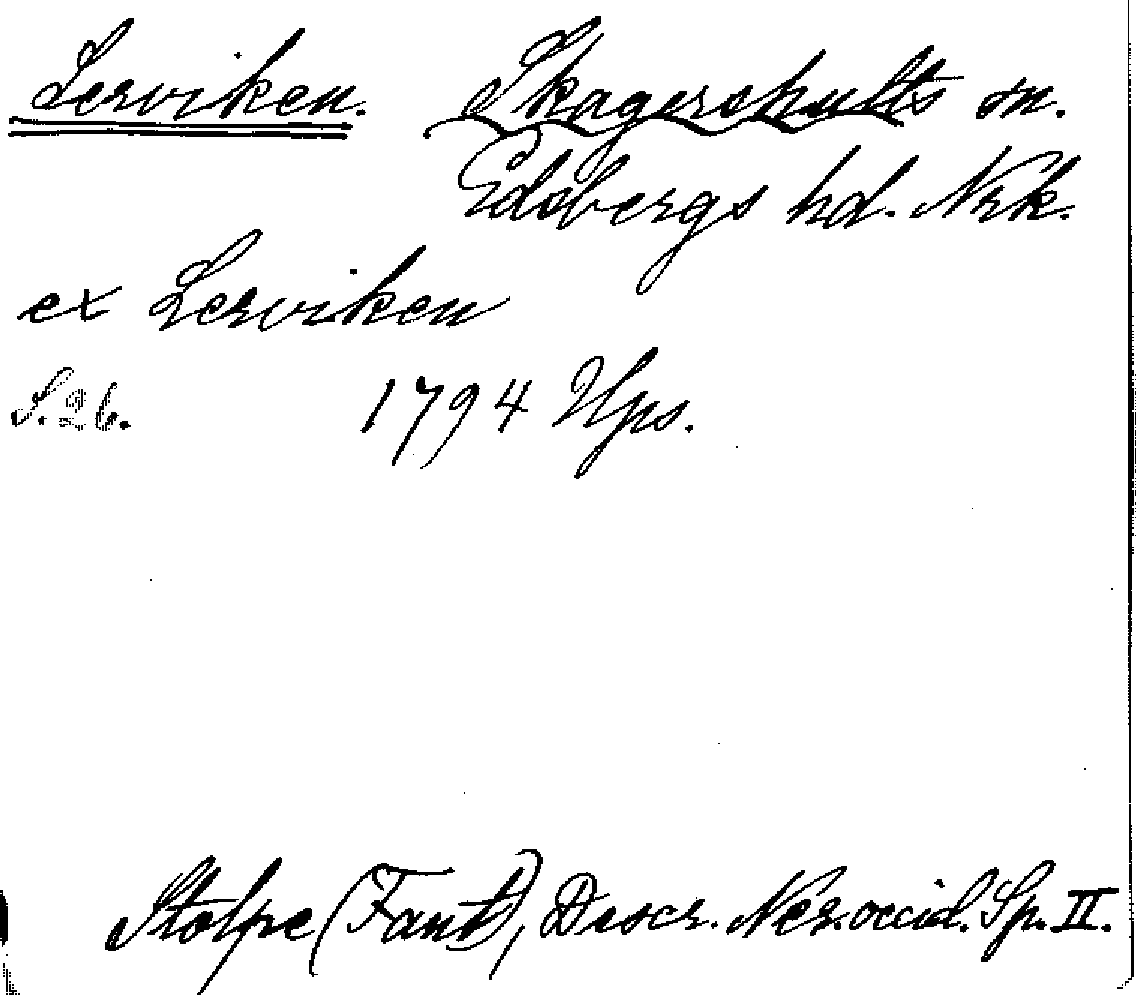 Lerviken. Skagershults sn.
Edsbergs hd. Nrk.
ex Lerviken
S. 26. 1794 Ups.
Stolpe (Fant), Descr. Ner. occid. Sp. II.